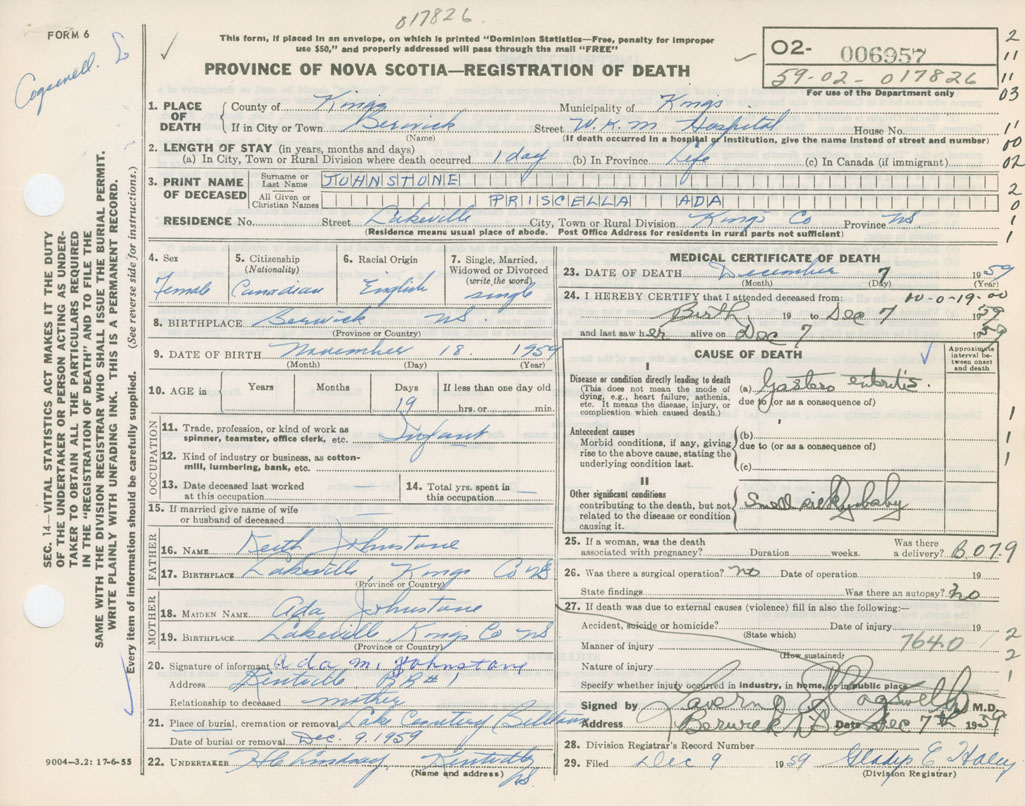 017826
FORM 6
This form, if placed in an envelope, on which is printed "Dominion Statistics—Free, penalty for improper
use $50," and properly addressed will pass through the mail "FREE"
PROVINCE OF NOVA SCOTIA—REGISTRATION OF DEATH
O2- 006957
59-02-017826
For use of the Department only
2
11
03
11
00
02
2
0
1
1. PLACE OF DEATH
County of Kings Municipality of Kings
If in City or Town Berwick Street W.K.M Hospital House No.
(Name) (If death occurred in a hospital or institution, give the name instead of street and number)
2. LENGTH OF STAY (in years, months and days)
(a) In City, Town or Rural Division where death occurred 1 day (b) In Province Life (c) In Canada (if immigrant)
3. PRINT NAME OF DECEASED
Surname or Last Name JOHNSTONE
All Given or Christian Names PRISCELLA ADA
RESIDENCE No. Street Lakeville City, Town or Rural Division Kings Co Province NS
(Residence means usual place of abode. Post Office Address for residents in rural parts not sufficient)
4. Sex
Female
5. Citizenship
(Nationality)
Canadian
6. Racial Origin
English
7. Single, Married,
Widowed or Divorced
(write the word)
single
8. BIRTHPLACE Berwick NS.
(Province or Country)
9. DATE OF BIRTH November 18. 1959
(Month) (Day) (Year)
10. AGE in Years Months Days If less than one day old
19 hrs. or min.
OCCUPATION
11. Trade, profession, or kind of work as
spinner, teamster, office clerk, etc. Infant
12. Kind of industry or business, as cotton-
mill, lumbering, bank, etc.
13. Date deceased last worked
at this occupation
14. Total yrs. spent in
this occupation
15. If married give name of wife
or husband of deceased
FATHER
16. NAME Keith Johnstone
17. BIRTHPLACE Lakeville, Kings Co NS
(Province or Country)
MOTHER
18. MAIDEN NAME Ada Johnstone
19. BIRTHPLACE Lakeville Kings Co NS
(Province or Country)
20. Signature of informant Ada M. Johnstone
Address Kentville RR# 1
Relationship to deceased mother
21. Place of burial, cremation or removal Lake Cemetery
Date of burial or removal Dec. 9. 1959
22. UNDERTAKER Lindsay Kentville NS
(Name and address)
9004-3.2: 17-6-55
MEDICAL CERTIFICATE OF DEATH
23. DATE OF DEATH December 7 1959
(Month) (Day) (Year)
24. I HEREBY CERTIFY that I attended deceased from: 00-0-19-00
Birth 19 to Dec 7 1959
and last saw her alive on Dec 7 1959
CAUSE OF DEATH
Approximate
interval be-
tween onset
and death
I
Disease or condition directly leading to death
(This does not mean the mode of
dying, e.g., heart failure, asthenia,
etc. It means the disease, injury, or
complication which caused death.)
(a) Gastero enteritis.
due to (or as a consequence of)
Antecedent causes
Morbid conditions, if any, giving
rise to the above cause, stating the
underlying condition last.
(b)
due to (or as a consequence of)
(c)
II
Other significant conditions
contributing to the death, but not
related to the disease or condition
causing it.
Small sickly baby
1
1
1
25. If a woman, was the death
associated with pregnancy? Duration weeks. Was there
a delivery? B.07.9
26. Was there a surgical operation? no Date of operation 19
State findings Was there an autopsy? no
27. If death was due to external causes (violence) fill in also the following:—
Accident, suicide or homicide? Date of injury 19
(State which)
Manner of injury 7640
(How sustained)
Nature of injury
Specify whether injury occurred in industry, in home, or in public place
2
2
1
Signed by M.D.
Address Berwick NS Date Dec 7th 1959
28. Division Registrar's Record Number
29. Filed Dec 9 1959 Gladys E Haley
(Division Registrar)
SEC. 14—VITAL STATISTICS ACT MAKES IT THE DUTY
OF THE UNDERTAKER OR PERSON ACTING AS UNDER-
TAKER TO OBTAIN ALL THE PARTICULARS REQUIRED
IN THE "REGISTRATION OF DEATH" AND TO FILE THE
SAME WITH THE DIVISION REGISTRAR WHO SHALL ISSUE THE BURIAL PERMIT.
WRITE PLAINLY WITH UNFADING INK. THIS IS A PERMANENT RECORD.
Every item of information should be carefully supplied. (See reverse side for instructions.)